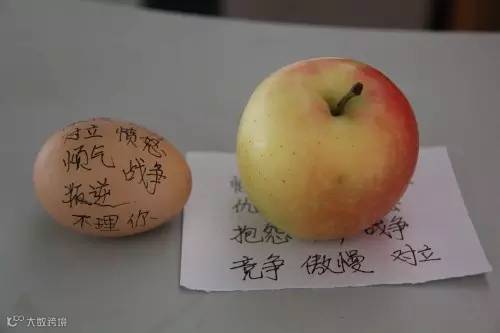 对立 愤怒
战争
叛逆
不理你
仇
抱怨 , 战争
竞争 傲慢 对立
大数跨境